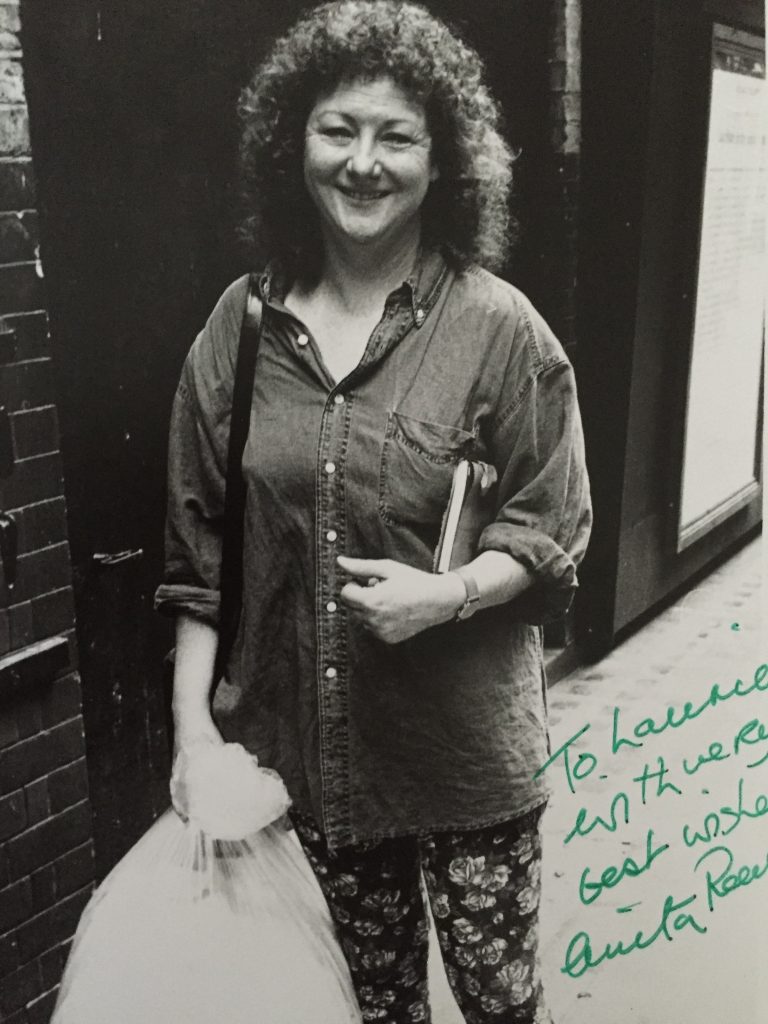 To Laurie
with very
best wishe
Anita Ree